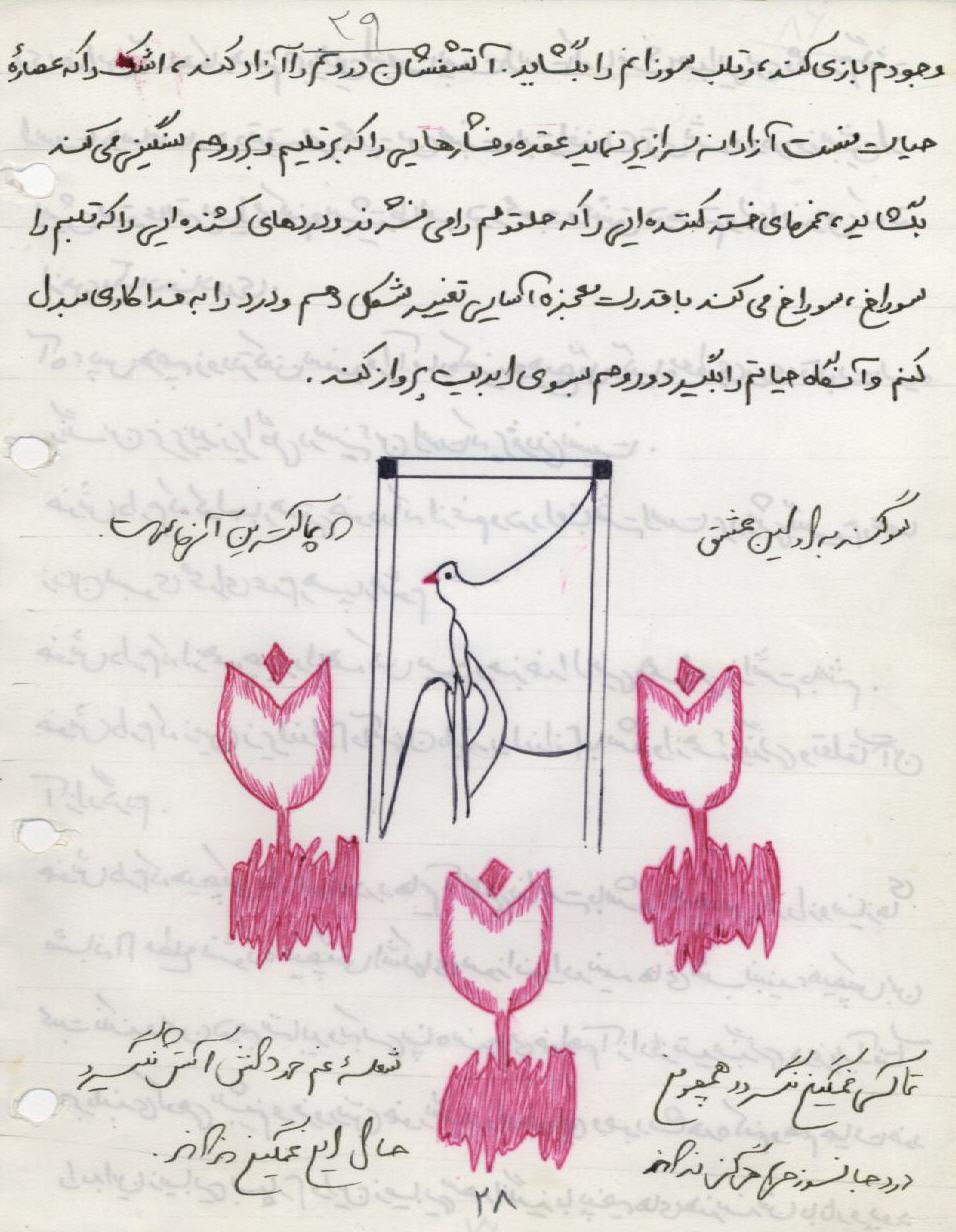 ۲۹
وجودم بازی کند، و قلب سوزانم را بگشاید. آتشفشان درونم را آزاد کند، اشک را که عصارهٔ
حیات منست آزادانه سرازیر نماید عقده و فشارهایی را که بر قلبم و بر روحم سنگینی می کند
بگشاید، غمهای خسته کننده ایی را که حلقومم را می فشرند و دردهای کشنده ایی را که قلبم را
سوراخ، سوراخ می کند با قدرت معجزه آسایی تغییر شکل دهم و درد را به فداکاری مبدل
کنم و آنگاه حیاتم را بگیرد و روحم بسوی ابدیت پرواز کند.
سوگند به اولین عشق
که پاکترین آنهاست.
تا کسی غمگین نگردد همچو من
شعلهٔ غم در دلش آتش نگیرد
درد جانسوز مرا هرگز نداند
حال این غمگین نداند.
۲۸